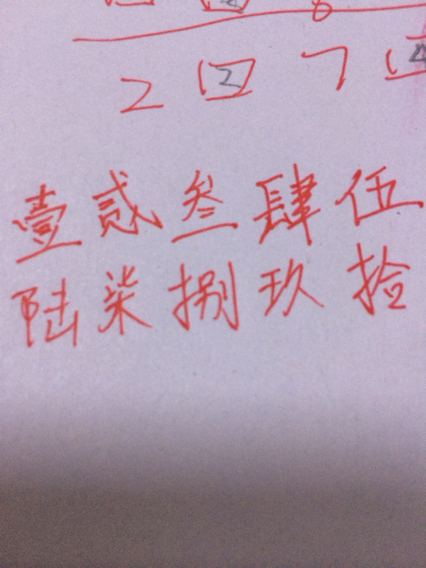 2 2 7 4
壹贰叁肆伍
陆柒捌玖拾